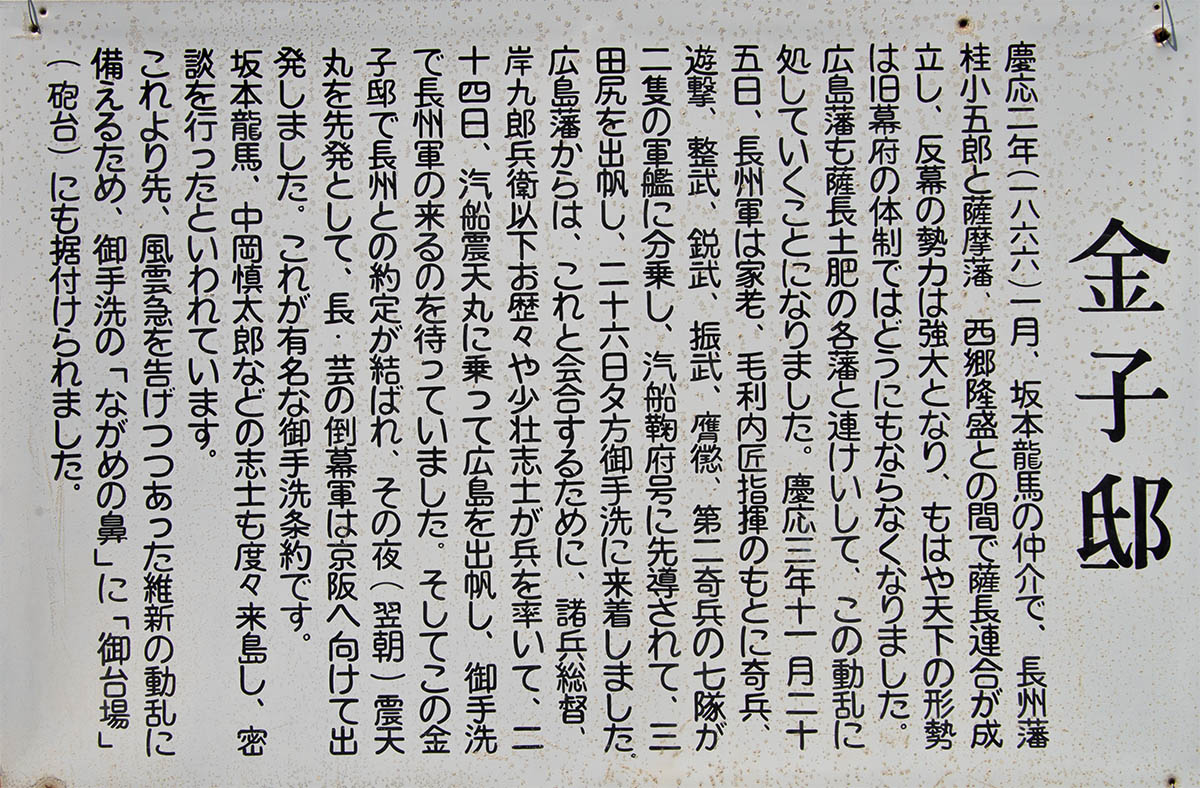 金子邸
慶応二年(一八六六)一月、坂本龍馬の仲介で、長州藩
桂小五郎と薩摩藩、西郷隆盛との間で薩長連合が成
立し、反幕の勢力は強大となり、もはや天下の形勢
は旧幕府の体制ではどうにもならなくなりました。
広島藩も薩長土肥の各藩と連けいして、この動乱に
処していくことになりました。慶応三年十一月二十
五日、長州軍は家老、毛利内匠指揮のもとに奇兵、
遊撃、整武、鋭武、振武、膺懲、第二奇兵の七隊が
二隻の軍艦に分乗し、汽船鞠府号に先導されて、三
田尻を出帆し、二十六日夕方御手洗に来着しました。
広島藩からは、これと会合するために、諸兵総督、
岸九郎兵衛以下お歴々や少壮志士が兵を率いて、二
十四日、汽船震天丸に乗って広島を出帆し、御手洗
で長州軍の来るのを待っていました。そしてこの金
子邸で長州との約定が結ばれ、その夜(翌朝)震天
丸を先発として、長・芸の倒幕軍は京阪へ向けて出
発しました。これが有名な御手洗条約です。
坂本龍馬、中岡慎太郎などの志士も度々来島し、密
談を行ったといわれています。
これより先、風雲急を告げつつあった維新の動乱に
備えるため、御手洗の「ながめの鼻」に「御台場」
(砲台)にも据付けられました。